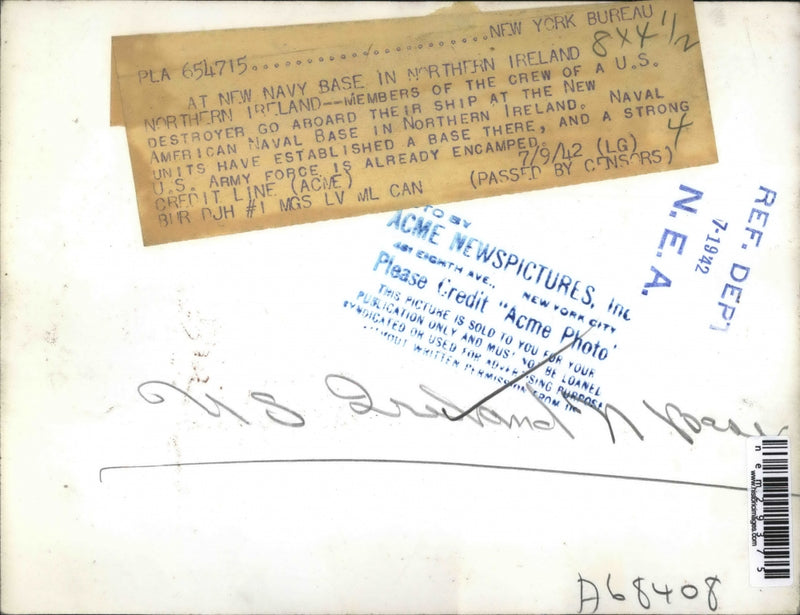 PLA 654715........................NEW YORK BUREAU
8x4 1/2
AT NEW NAVY BASE IN NORTHERN IRELAND
NORTHERN IRELAND--MEMBERS OF THE CREW OF A U.S.
DESTROYER GO ABOARD THEIR SHIP AT THE NEW
AMERICAN NAVAL BASE IN NORTHERN IRELAND. NAVAL
UNITS HAVE ESTABLISHED A BASE THERE, AND A STRONG
U.S. ARMY FORCE IS ALREADY ENCAMPED.
4
CREDIT LINE (ACME) 7/9/42 (LG)
BUR DJH #1 MGS LV ML CAN (PASSED BY CENSORS)
TO BY
ACME NEWSPICTURES, Inc
461 EIGHTH AVE., NEW YORK CITY
Please Credit "Acme Photo"
THIS PICTURE IS SOLD TO YOU FOR YOUR
PUBLICATION ONLY AND MUST NOT BE LOANED
SYNDICATED OR USED FOR ADVERTISING PURPOSES
WITHOUT WRITTEN PERMISSION FROM
REF. DEPT
7-19 42
N.E.A.
US Ireland N
nem29375
A68408